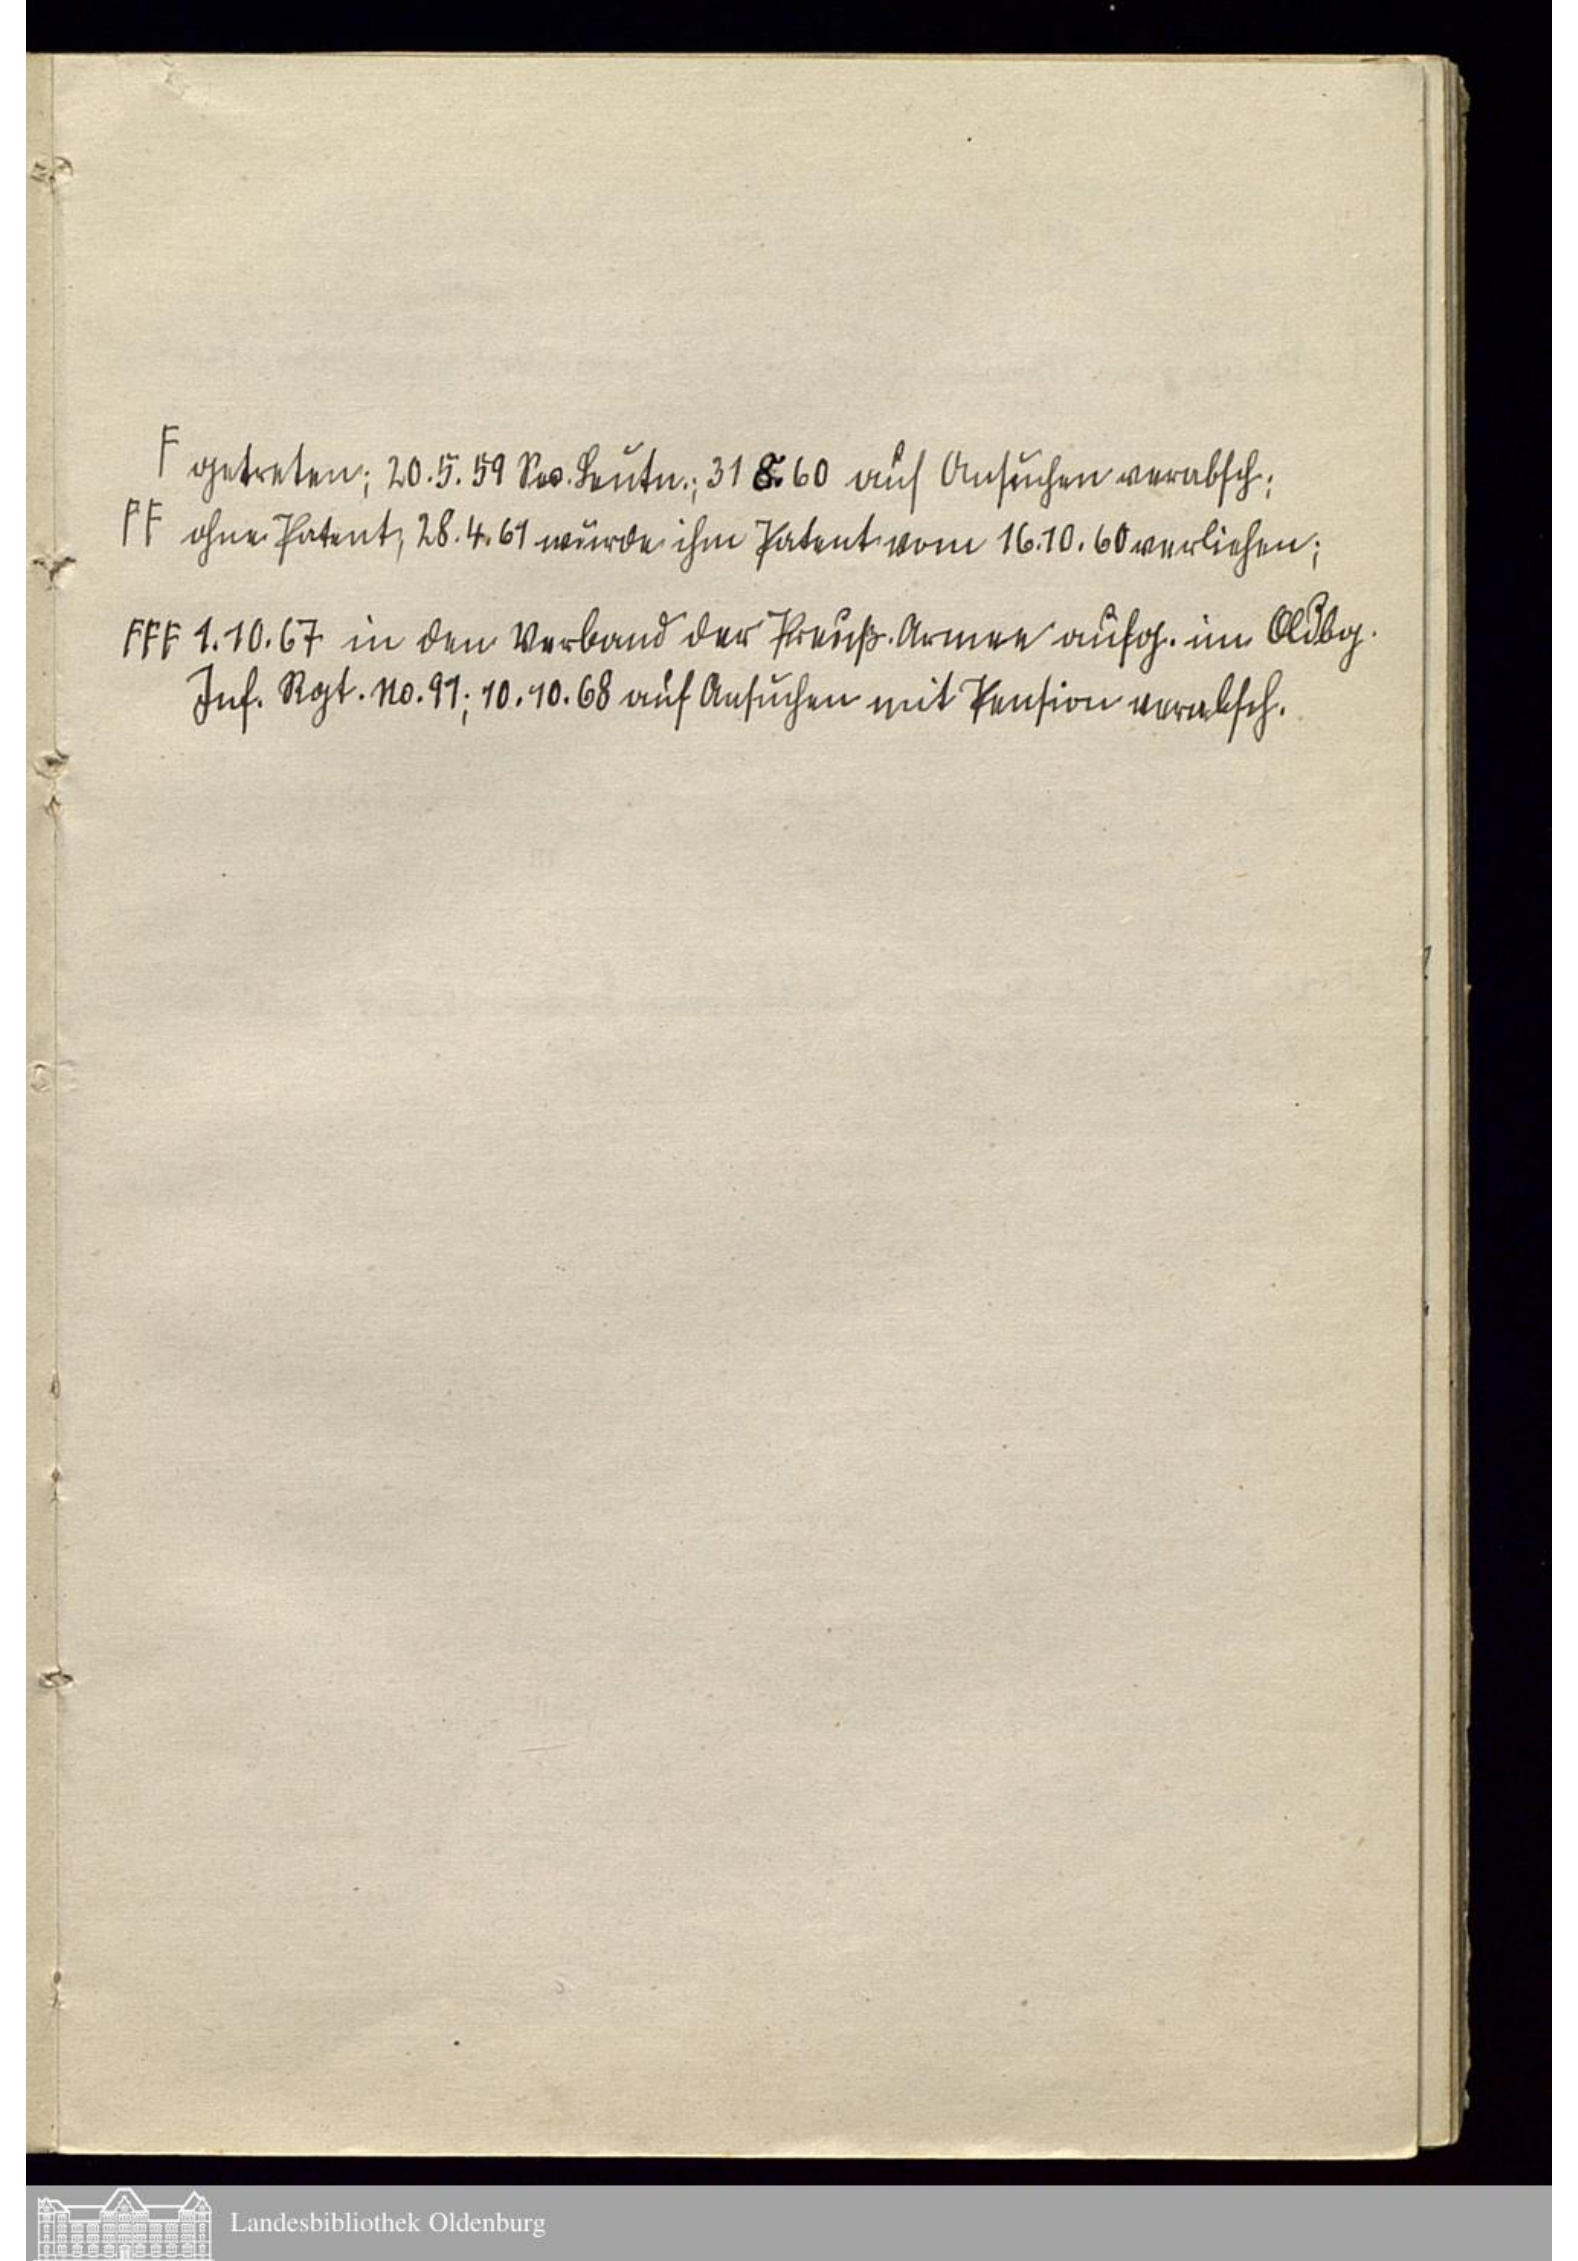 F getreten; 20.5.59 Sec. Leutn.; 31 8. 60 auf Ansuchen verabsch;
FF ohne Patent; 28.4.61 wurde ihm Patent vom 16.10.60 verliehen;
FFF 1.10.67 in den Verband der Preuß. Armee aufg. im Oldbg.
Inf. Rgt. No. 91; 10.10.68 auf Ansuchen mit Pension verabsch.
Landesbibliothek Oldenburg